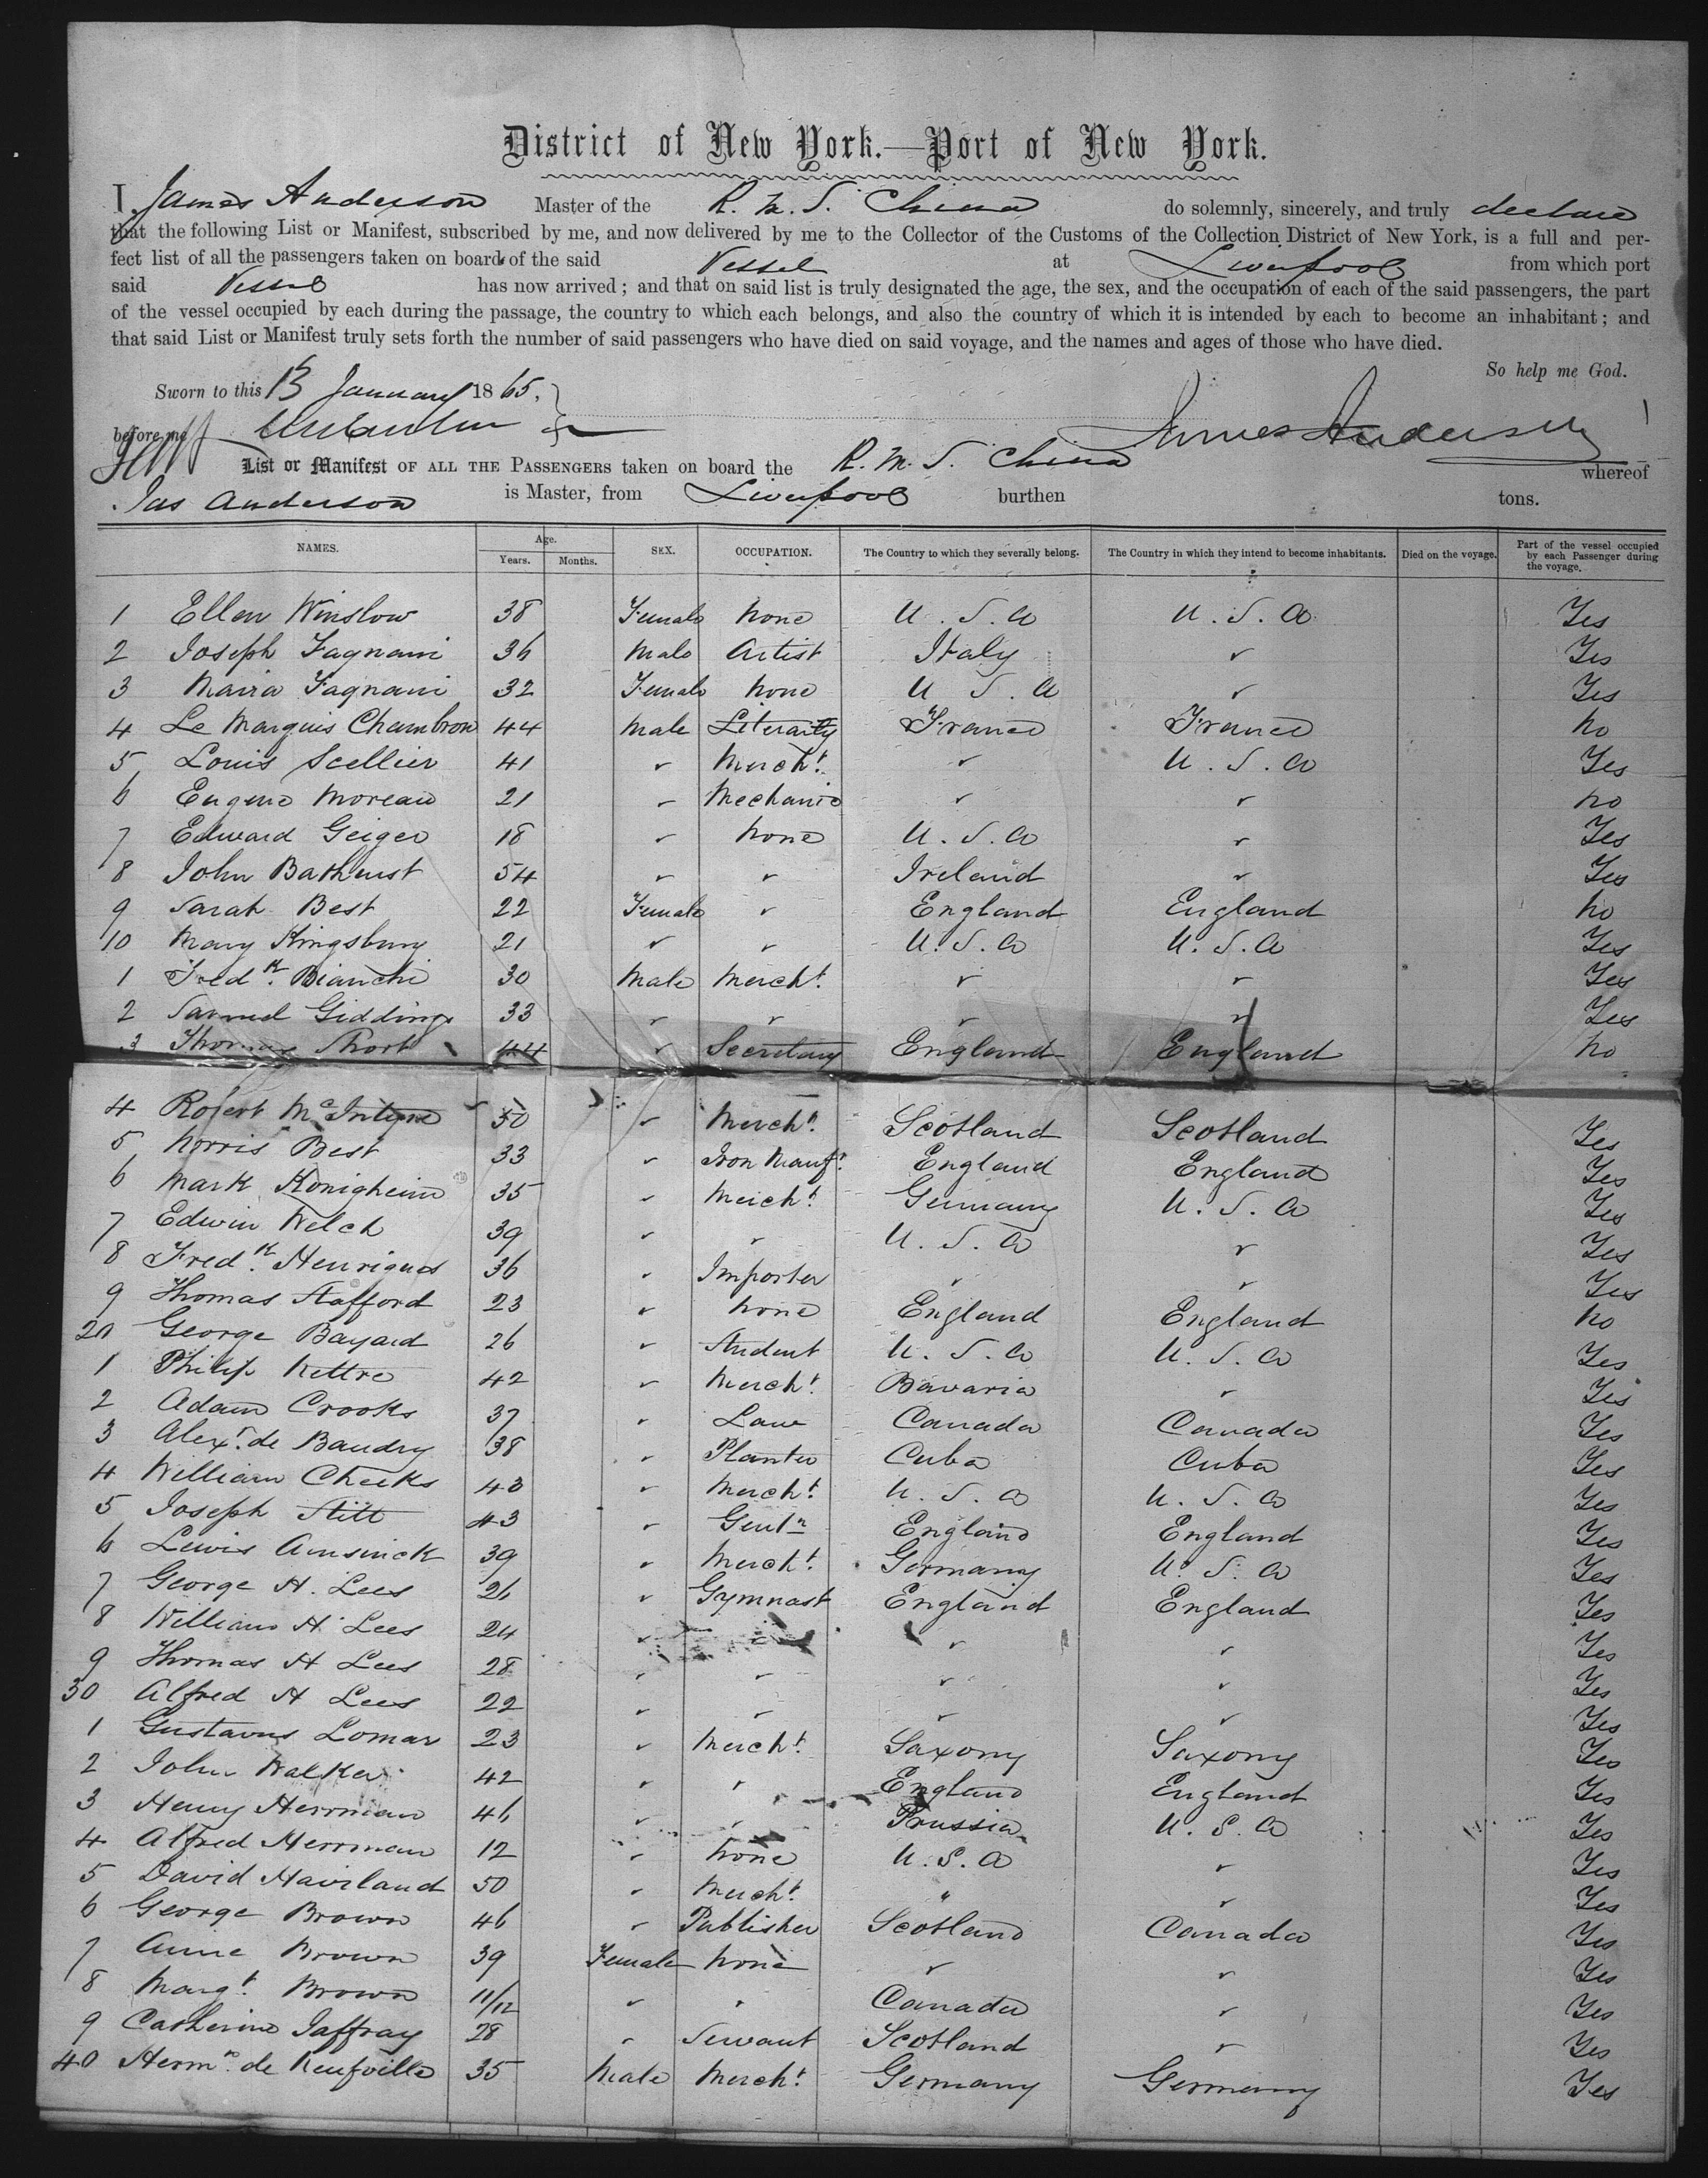 District of New York.—Port of New York.
I, James Anderson Master of the R. M. S. China do solemnly, sincerely, and truly declare
that the following List or Manifest, subscribed by me, and now delivered by me to the Collector of the Customs of the Collection District of New York, is a full and per-
fect list of all the passengers taken on board of the said Vessel at Liverpool from which port
said Vessel has now arrived; and that on said list is truly designated the age, the sex, and the occupation of each of the said passengers, the part
of the vessel occupied by each during the passage, the country to which each belongs, and also the country of which it is intended by each to become an inhabitant; and
that said List or Manifest truly sets forth the number of said passengers who have died on said voyage, and the names and ages of those who have died.
So help me God.
Sworn to this 13 January 1865,
before me James Anderson
List or Manifest OF ALL THE PASSENGERS taken on board the R. M. S. China whereof
Jas Anderson is Master, from Liverpool burthen tons.
NAMES. Age. Years. Months. SEX. OCCUPATION. The Country to which they severally belong. The Country in which they intend to become inhabitants. Died on the voyage. Part of the vessel occupied by each Passenger during the voyage.
1 Ellen Winslow 38 Female None U. S. A U. S. A Yes
2 Joseph Fagnani 36 Male Artist Italy ✓ Yes
3 Maria Fagnani 32 Female None U S. A ✓ Yes
4 Le Marquis Chambron 44 Male Literarity France France No
5 Louis Scellier 41 ✓ Mercht. ✓ U. S. A Yes
6 Eugene Moreau 21 ✓ Mechanic ✓ ✓ No
7 Edward Geiger 18 ✓ None U. S. A ✓ Yes
8 John Bathurst 54 ✓ ✓ Ireland ✓ Yes
9 Sarah Best 22 Female ✓ England England No
10 Mary Kingsbury 21 ✓ ✓ U. S. A U. S. A Yes
1 Fredk. Bianchi 30 Male Mercht. ✓ ✓ Yes
2 Samuel Giddings 33 ✓ ✓ ✓ ✓ Yes
3 Thomas Short 44 ✓ Secretary England England No
4 Robert McIntyre 50 ✓ Mercht. Scotland Scotland Yes
5 Norris Best 33 ✓ Iron Manuft. England England Yes
6 Mark Konigheim 35 ✓ Mercht. Germany U. S. A Yes
7 Edwin Welch 39 ✓ ✓ U. S. A ✓ Yes
8 Fredk. Henriques 36 ✓ Importer ✓ ✓ Yes
9 Thomas Stafford 23 ✓ None England England No
20 George Bayard 26 ✓ Student U. S. A U. S. A Yes
1 Philip 42 ✓ Mercht. Bavaria ✓ Yes
2 Adam Crooks 37 ✓ Law Canada Canada Yes
3 Alexr. de Baudry 38 ✓ Planter Cuba Cuba Yes
4 William Cheeks 43 ✓ Mercht. U. S. A U. S. A Yes
5 Joseph Stitt 43 ✓ Gentn England England Yes
6 Lewis Amsinck 39 ✓ Mercht. Germany U. S. A Yes
7 George H. Lees 26 ✓ Gymnast England England Yes
8 William H Lees 24 ✓ ✓ ✓ ✓ Yes
9 Thomas H Lees 28 ✓ ✓ ✓ ✓ Yes
30 Alfred H Lees 22 ✓ ✓ ✓ ✓ Yes
1 Gustavus Lomar 23 ✓ Mercht. Saxony Saxony Yes
2 John Walker 42 ✓ ✓ England England Yes
3 Henry Herrman 46 ✓ ✓ Prussia U. S. A Yes
4 Alfred Herrman 12 ✓ None U. S. A ✓ Yes
5 David Haviland 50 ✓ Mercht. " ✓ Yes
6 George Brown 46 ✓ Publisher Scotland Canada Yes
7 Anne Brown 39 Female None ✓ ✓ Yes
8 Margt. Brown 11/12 ✓ ✓ Canada ✓ Yes
9 Catherine Jaffray 28 ✓ Servant Scotland ✓ Yes
40 Hermn. de Neufville 35 Male Mercht. Germany Germany Yes